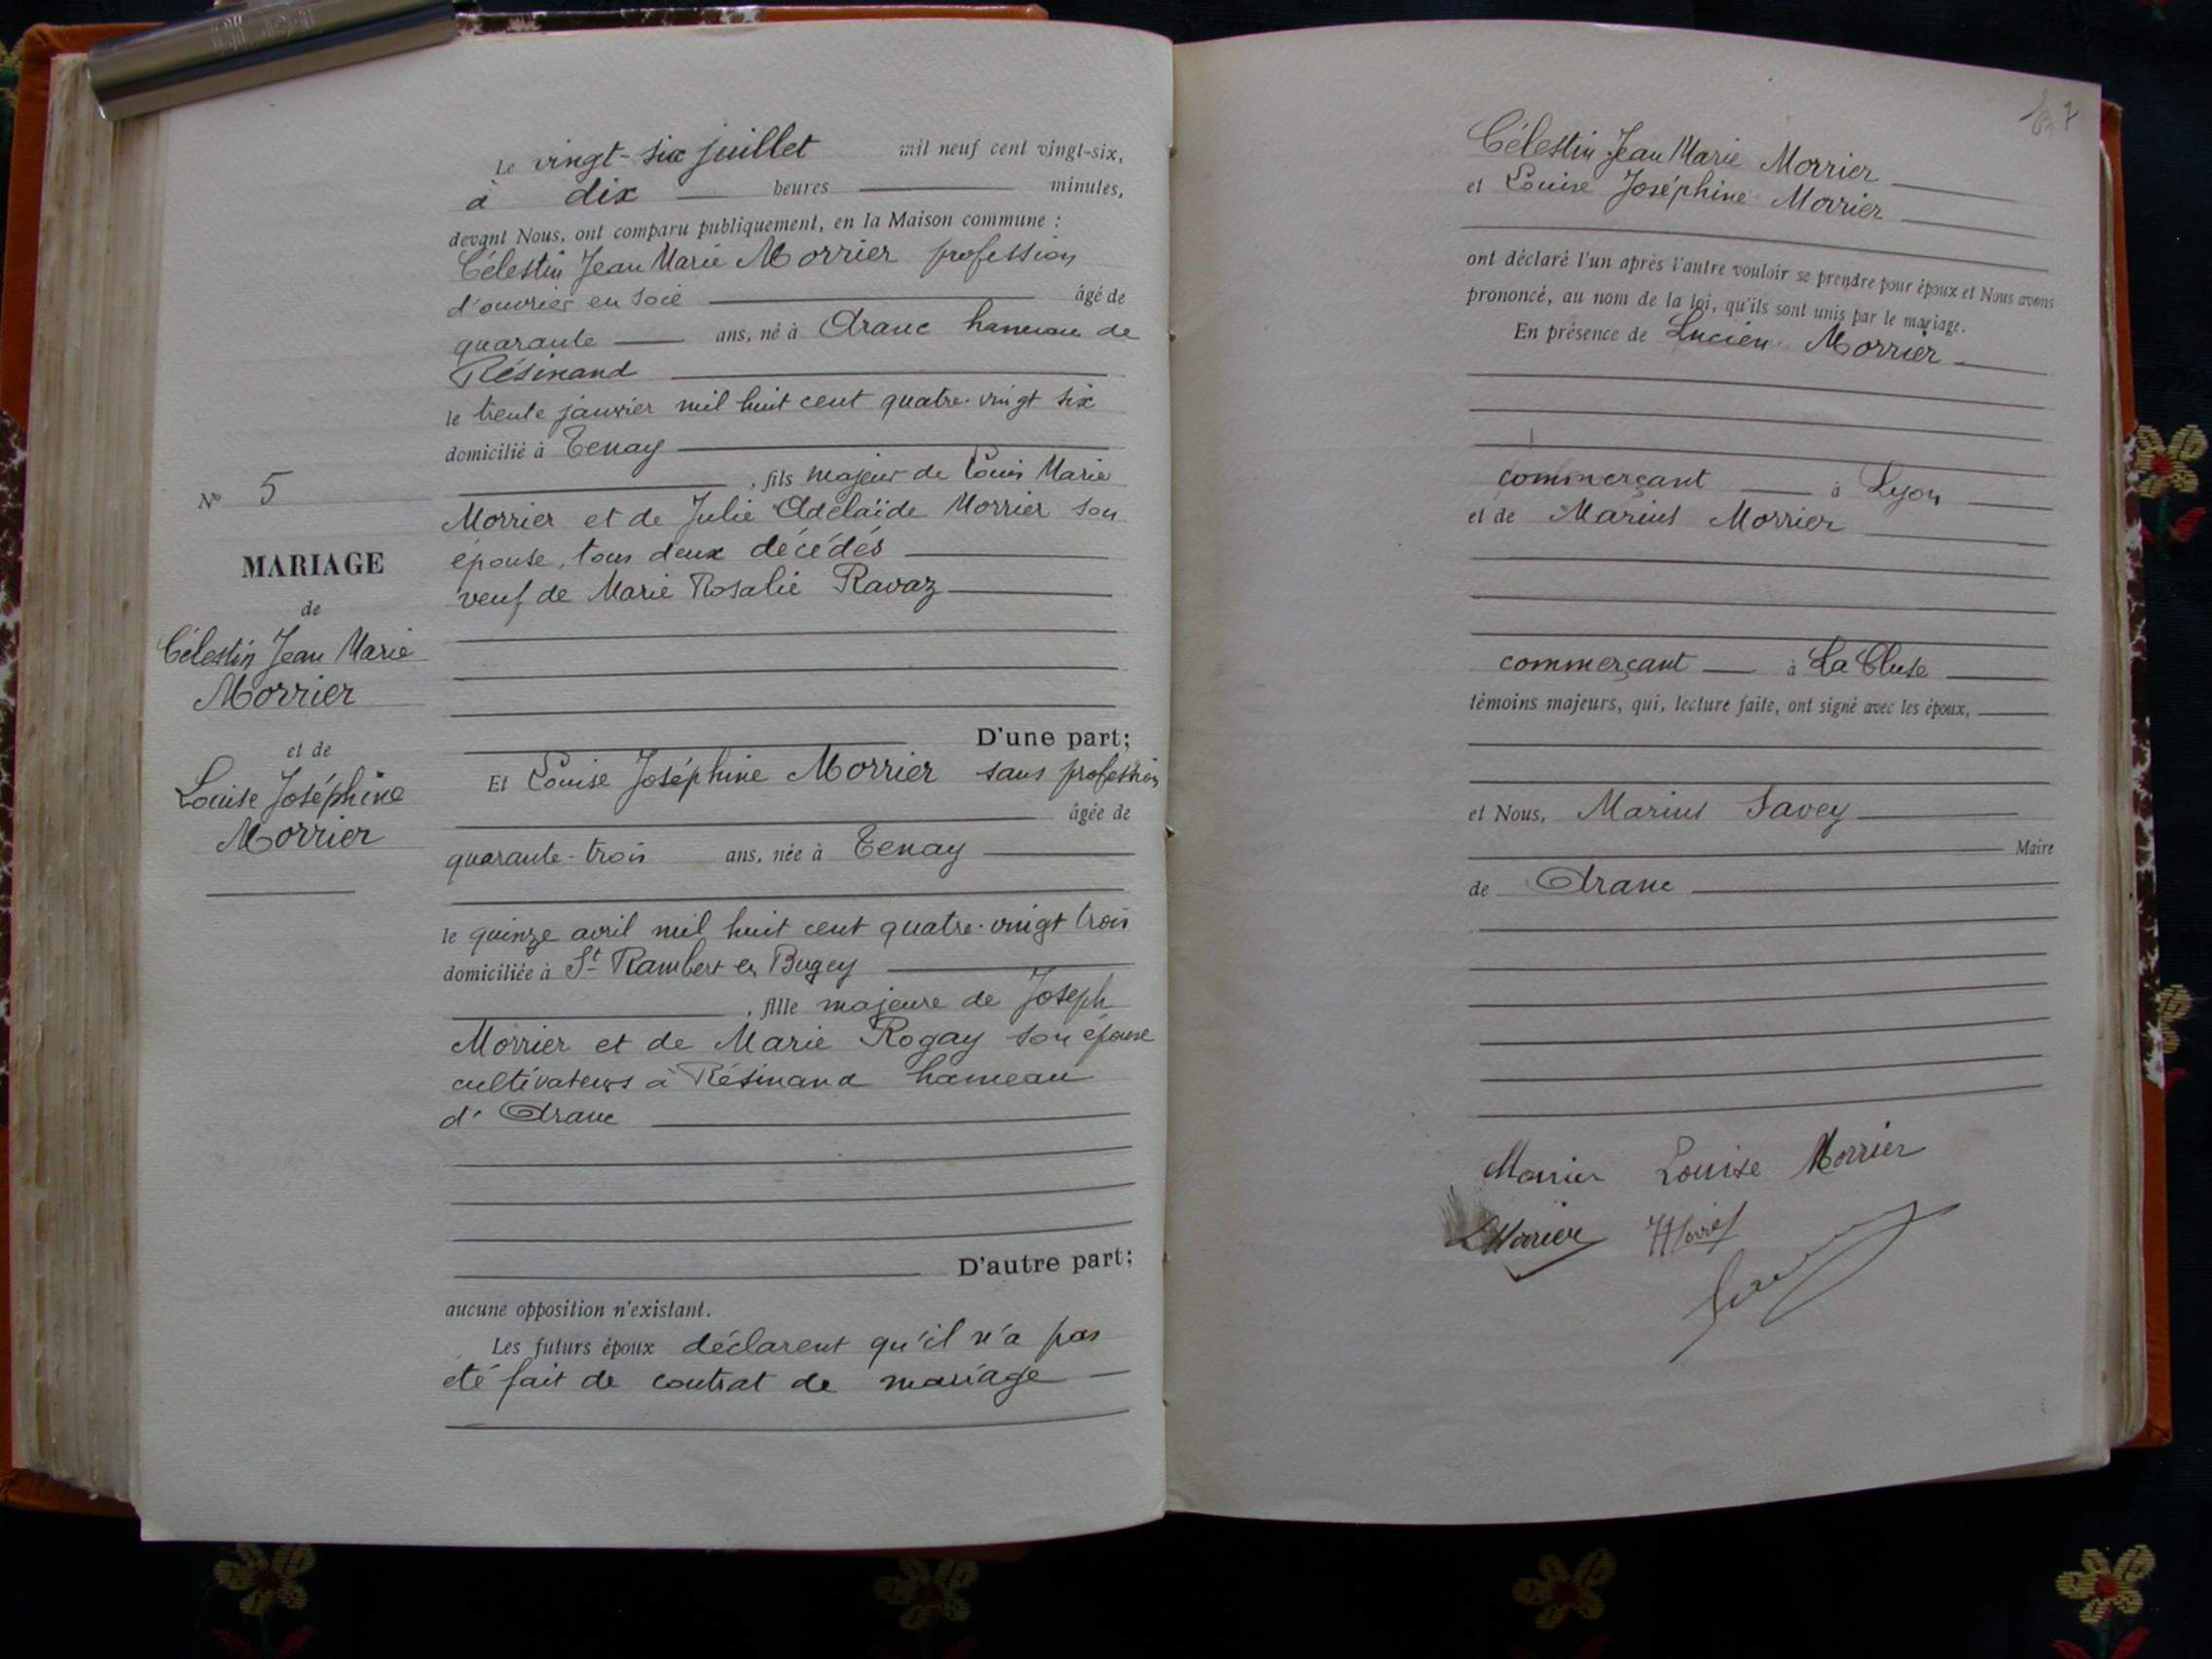 Le vingt-six juillet mil neuf cent vingt-six,
à dix heures minutes,
devant Nous, ont comparu publiquement, en la Maison commune :
Célestin Jean Marie Morrier profession
d'ouvrier en soie âgé de
quarante ans, né à Aranc hameau de
Résinand
le trente janvier mil huit cent quatre-vingt six
domicilié à Tenay
, fils majeur de Louis Marie
Morrier et de Julie Adélaïde Morrier son
épouse, tous deux décédés
veuf de Marie Rosalie Ravaz
D'une part;
Et Louise Joséphine Morrier sans profession
âgée de
quarante-trois ans, née à Tenay
le quinze avril mil huit cent quatre-vingt trois
domiciliée à St Rambert en Bugey
, fille majeure de Joseph
Morrier et de Marie Rogay son épouse
cultivateurs à Résinand hameau
d'Aranc
D'autre part;
aucune opposition n'existant.
Les futurs époux déclarent qu'il n'a pas
été fait de contrat de mariage
No 5
MARIAGE
de
Célestin Jean Marie
Morrier
et de
Louise Joséphine
Morrier
7
Célestin Jean Marie Morrier
et Louise Joséphine Morrier
ont déclaré l'un après l'autre vouloir se prendre pour époux et Nous avons
prononcé, au nom de la loi, qu'ils sont unis par le mariage.
En présence de Lucien Morrier
commerçant à Lyon
et de Marius Morrier
commerçant à La Cluse
témoins majeurs, qui, lecture faite, ont signé avec les époux,
et Nous, Marius Savey
Maire
de Aranc
Morrier Louise Morrier